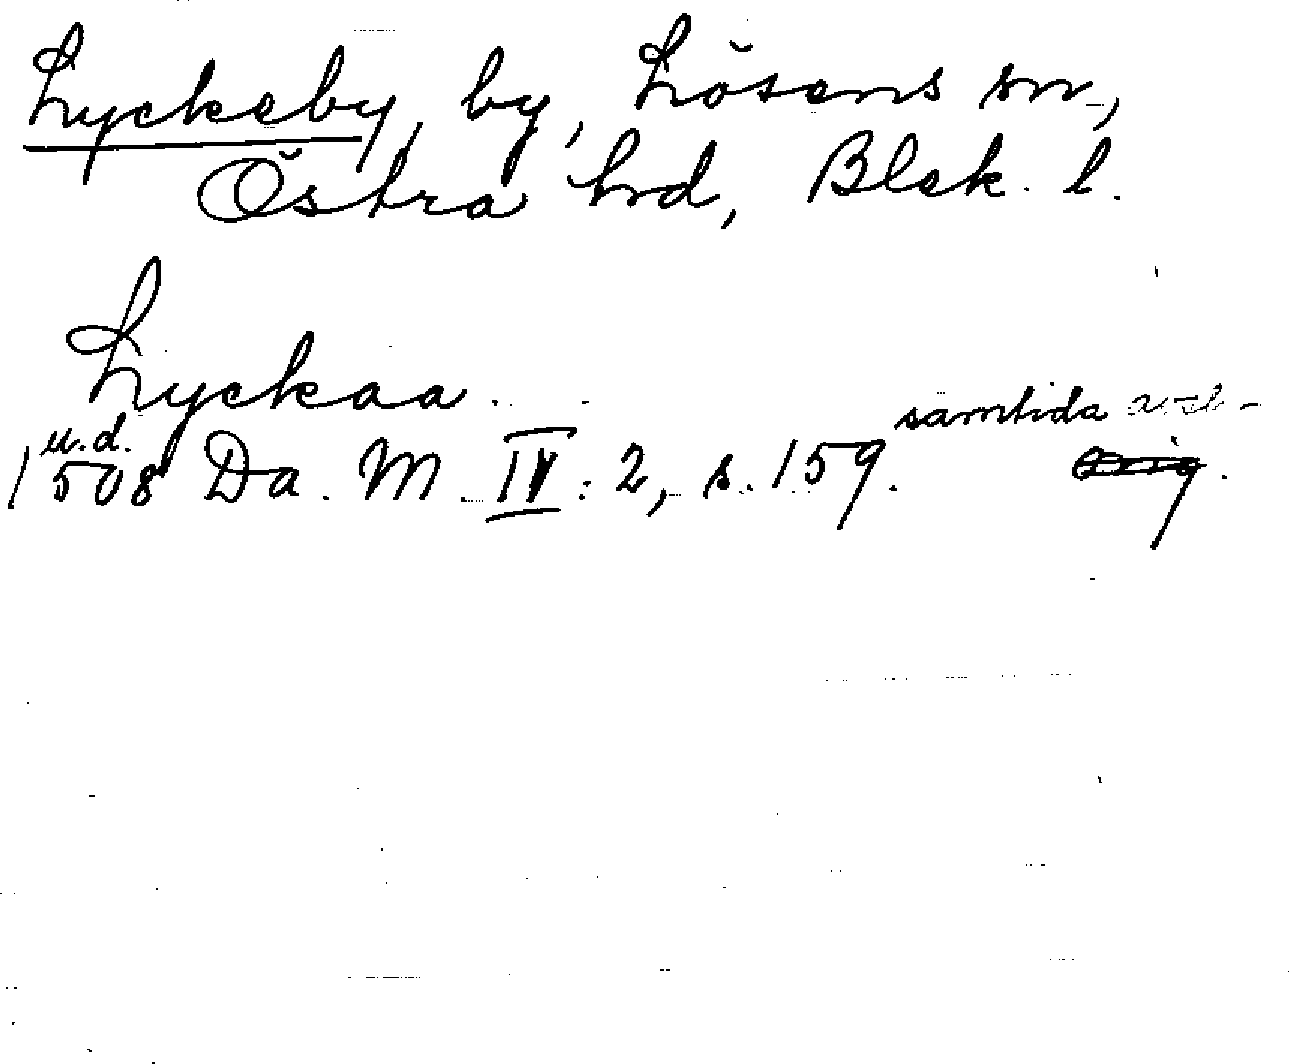 Lyckeby, by, Lösens sn,
Östra hd, Blek. l.
Lyckaa.
u.d. samtida
1508 Da. M. IV: 2, s. 159. Orig.